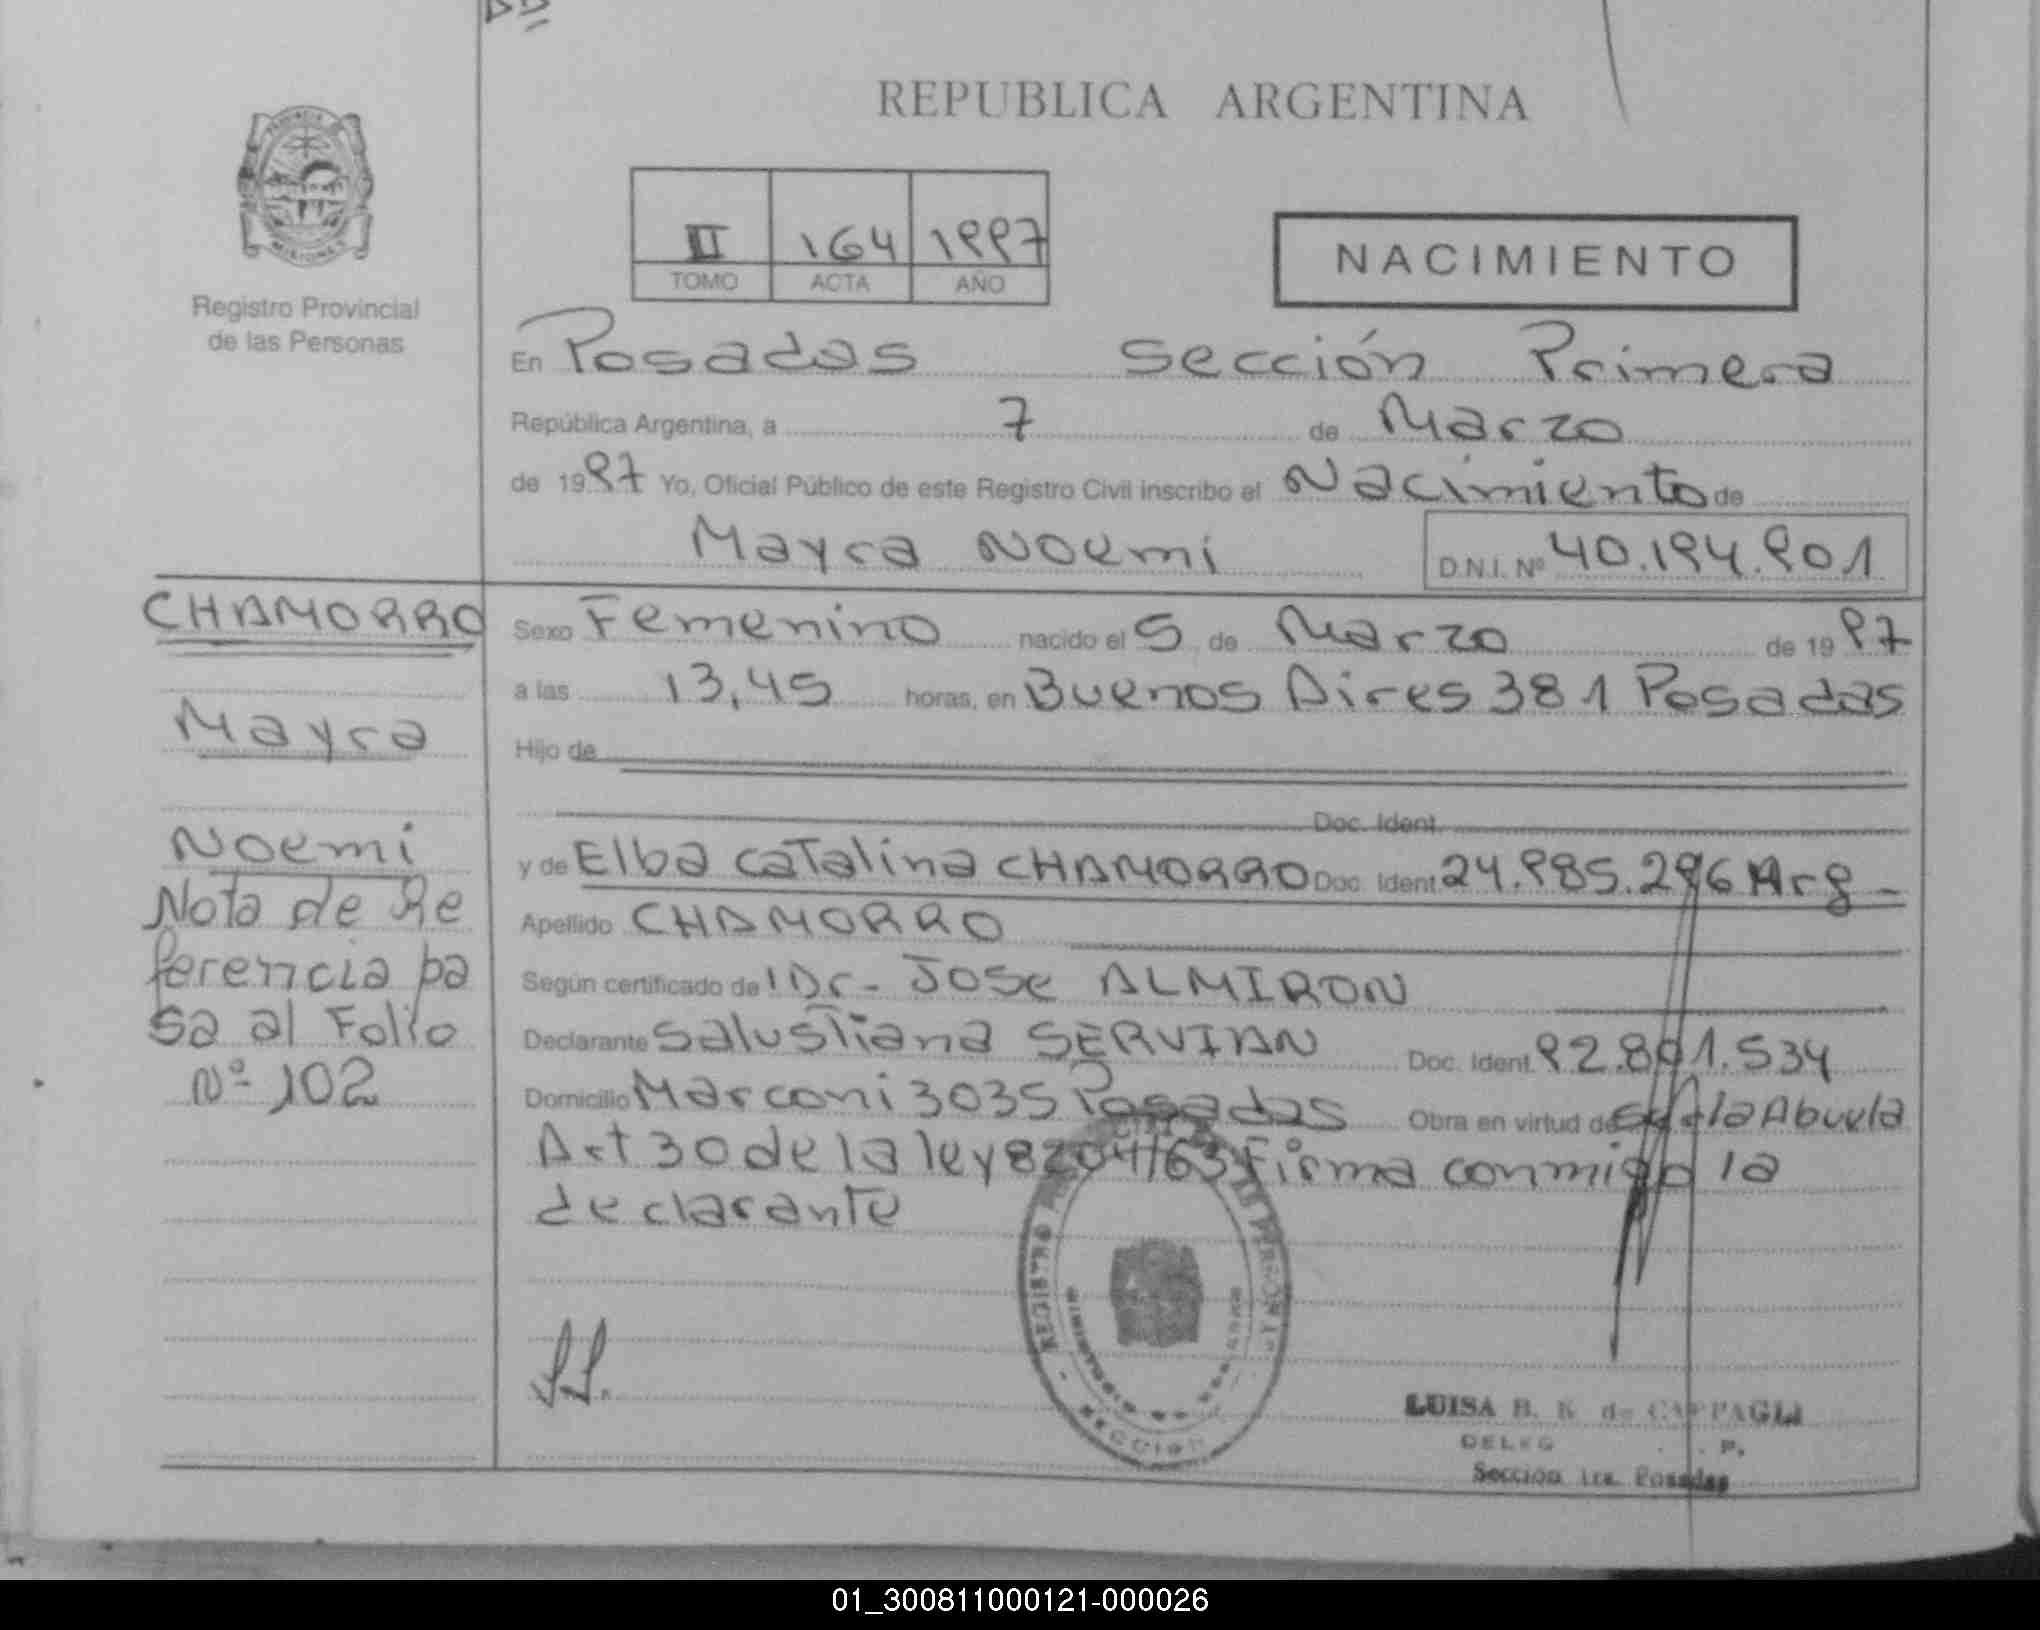 REPUBLICA ARGENTINA
PROVINCIA DE
MISIONES
Registro Provincial
de las Personas
II 164 1997
TOMO ACTA AÑO
NACIMIENTO
En Posadas sección Primera
República Argentina, a 7 de Marzo
de 1997 Yo, Oficial Público de este Registro Civil inscribo el Nacimiento de
Mayra Noemi D.N.I. Nº 40.194.901
CHAMORRO
Mayra
Noemi
Nota de Re
ferencia pa
sa al Folio
Nº 102
Sexo Femenino nacido el 5 de Marzo de 1997
a las 13,45 horas, en Buenos Aires 381 Posadas
Hijo de
Doc. Ident.
y de Elba Catalina CHAMORRO Doc. Ident. 24.985.296 Arg -
Apellido CHAMORRO
Según certificado de l Dr- Jose ALMIRON
Declarante Salustiana SERVIAN Doc. Ident. 92.801.534
Domicilio Marconi 3035 Posadas Obra en virtud de la Abuela
Art 30 de la ley 8204/63 Firma conmigo la
declarante
SECCION
LUISA B. K. de CAPPAGLI
DELEG P.
Sección 1ra. Posadas
01_300811000121-000026